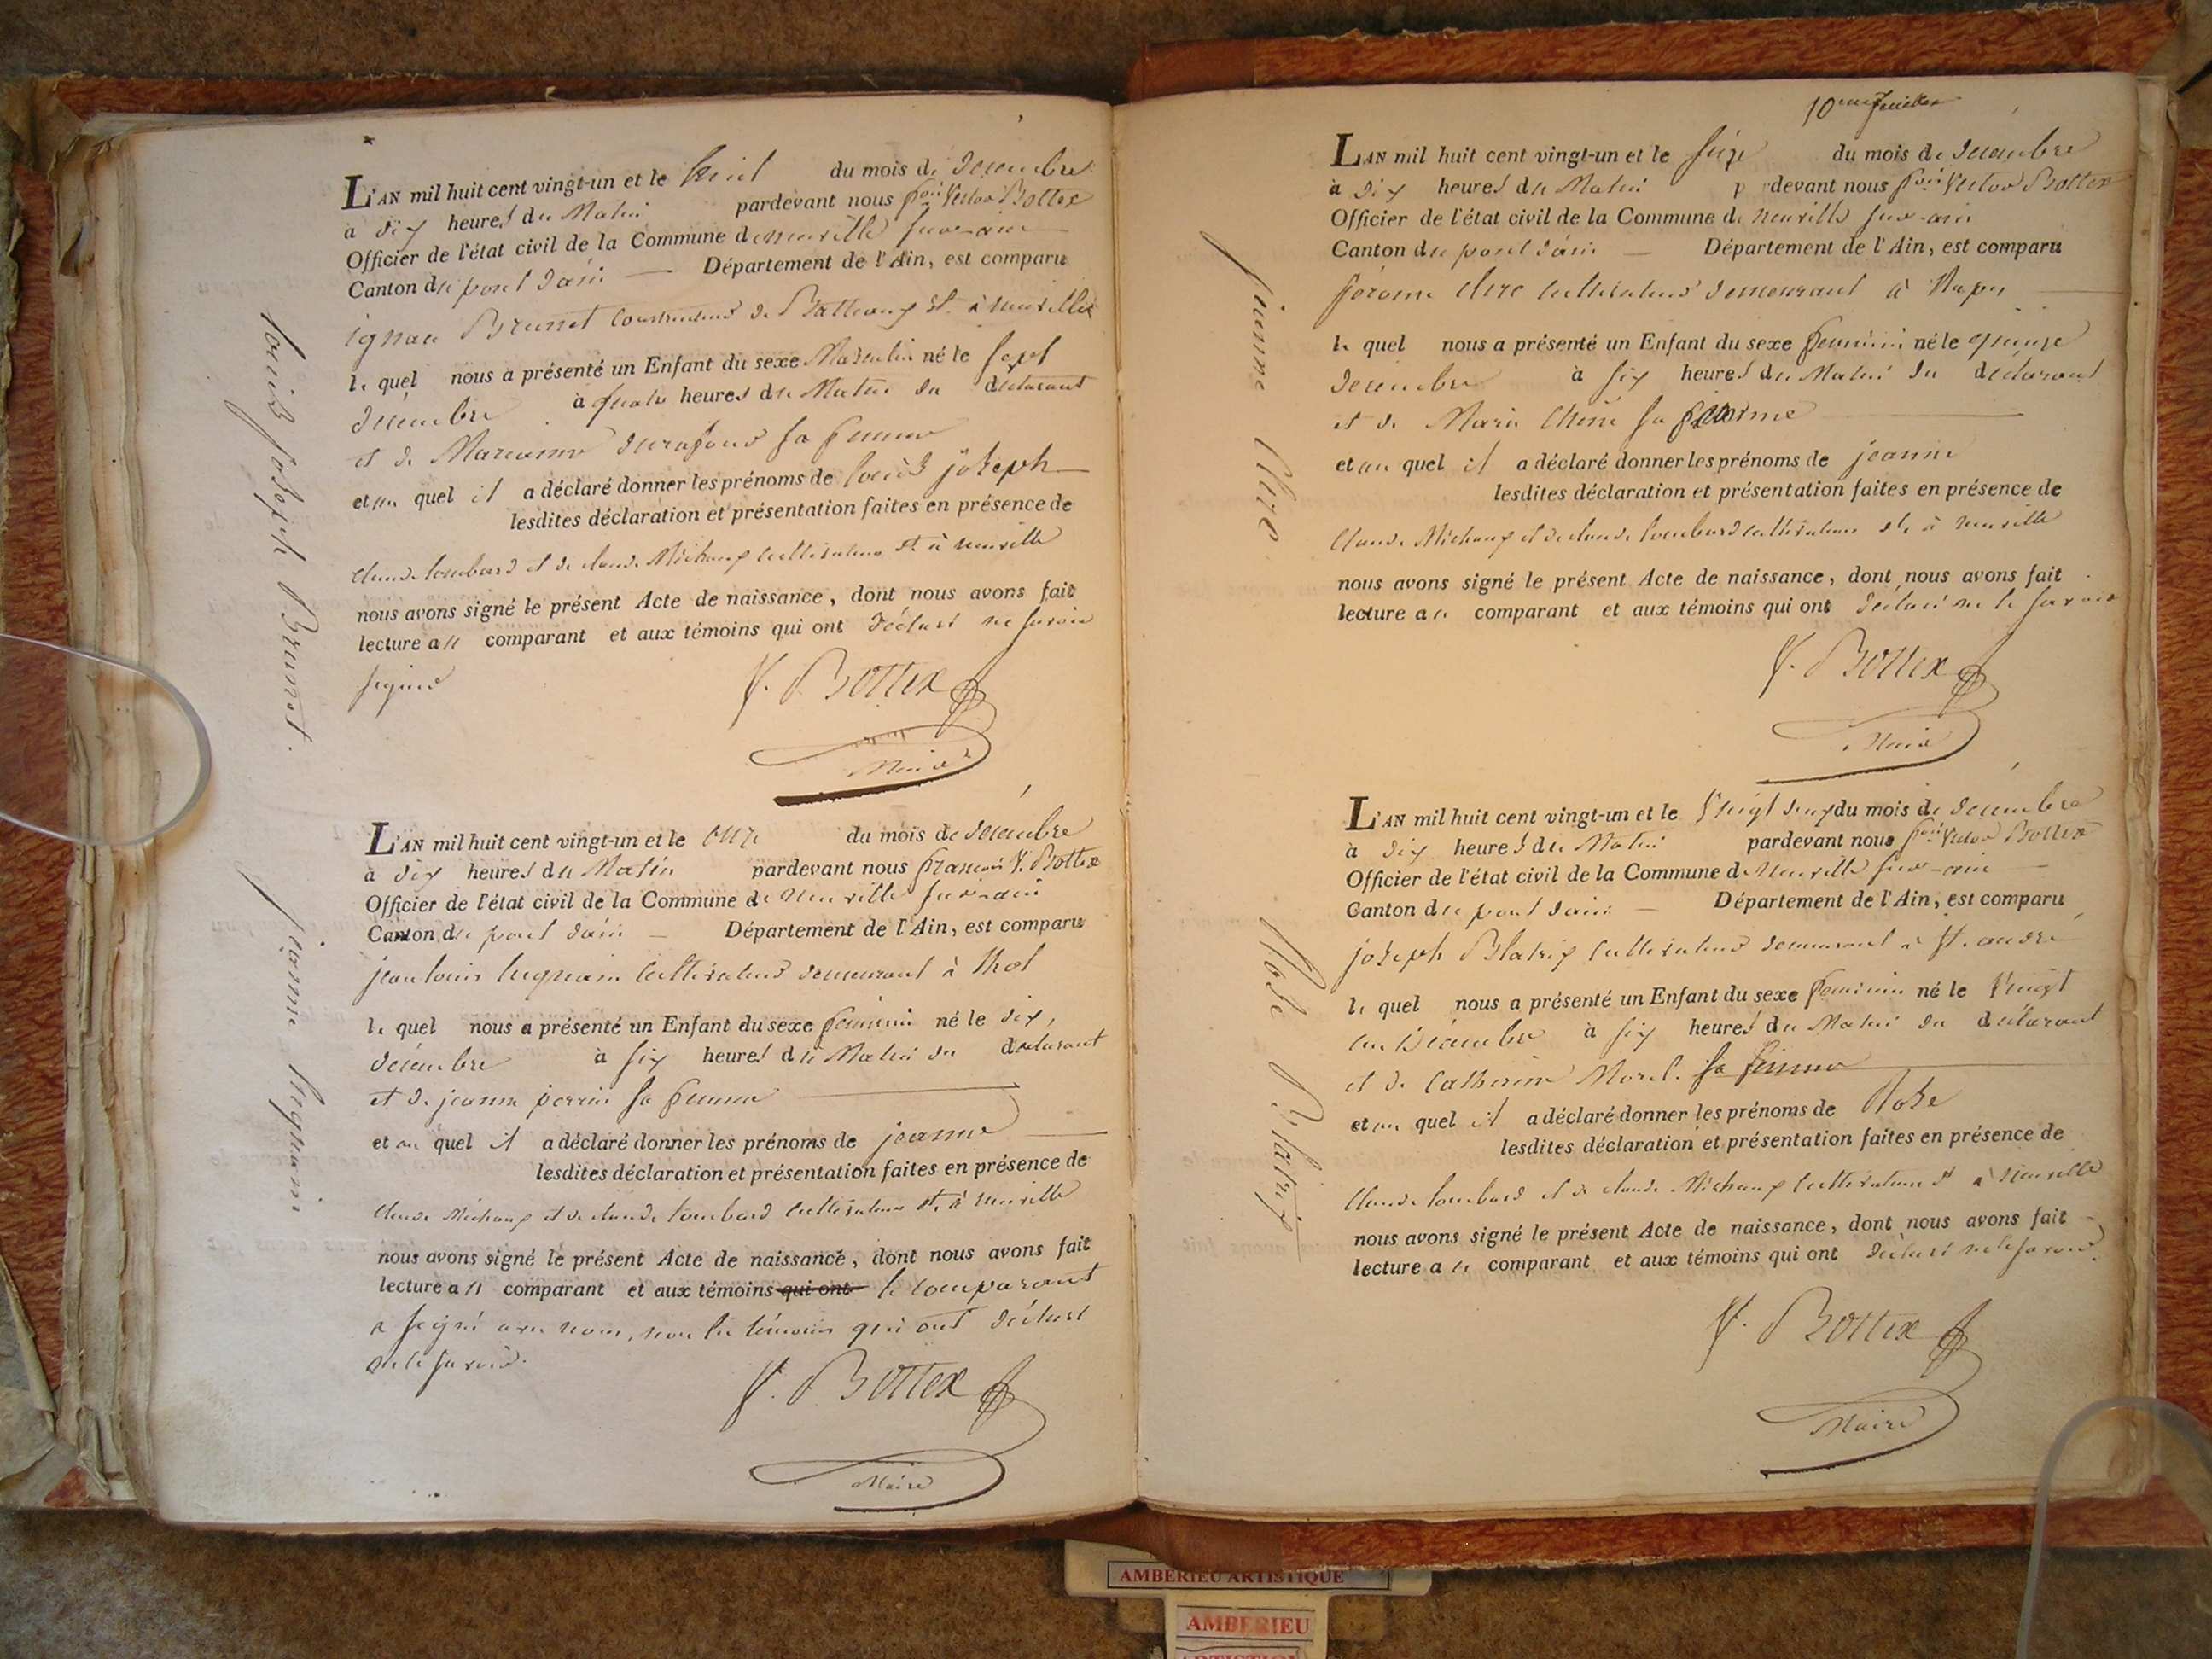 L'AN mil huit cent vingt-un et le huit du mois de décembre
à dix heures du Matin pardevant nous fçois Victor Bottex
Officier de l'état civil de la Commune de neuville sur-ain
Canton du pont d'ain — Département de l'Ain, est comparu
ignace Brunet constructeur de Batteaux dt. à neuville
le quel nous a présenté un Enfant du sexe Masculin né le sept
décembre à quatre heures du Matin du déclarant
et de Marianne sa femme
et au quel il a déclaré donner les prénoms de louis joseph
lesdites déclaration et présentation faites en présence de
Claude lombard et de claude Michaux cultivateurs dt. à neuville
nous avons signé le présent Acte de naissance, dont nous avons fait
lecture au comparant et aux témoins qui ont déclaré ne savoir
signer
V. Bottex
Maire
louis joseph Brunet.
L'AN mil huit cent vingt-un et le onze du mois de décembre
à dix heures du Matin pardevant nous françois V. Bottex
Officier de l'état civil de la Commune de neuville sur-ain
Canton du pont d'ain — Département de l'Ain, est comparu
jean louis cultivateur demeurant à thol
le quel nous a présenté un Enfant du sexe féminin né le dix
décembre à six heures du Matin du déclarant
et de jeanne perrin sa femme
et au quel il a déclaré donner les prénoms de jeanne
lesdites déclaration et présentation faites en présence de
Claude Michaux et de claude lombard cultivateurs dt. à neuville
nous avons signé le présent Acte de naissance, dont nous avons fait
lecture au comparant et aux témoins qui ont le comparant
a signé avec nous, non les témoins qui ont déclaré
ne le savoir.
V. Bottex
Maire
jeanne
10eme feuillet
L'AN mil huit cent vingt-un et le seize du mois de décembre
à dix heures du Matin pardevant nous fçois Victor Bottex
Officier de l'état civil de la Commune de neuville sur-ain
Canton du pont d'ain — Département de l'Ain, est comparu
jérome Clerc cultivateur demeurant à
le quel nous a présenté un Enfant du sexe féminin né le quinze
décembre à six heures du Matin du déclarant
et de Marie Chêne sa femme
et au quel il a déclaré donner les prénoms de jeanne
lesdites déclaration et présentation faites en présence de
Claude Michaux et de claude lombard cultivateurs dt. à neuville
nous avons signé le présent Acte de naissance, dont nous avons fait
lecture au comparant et aux témoins qui ont déclaré ne le savoir
V. Bottex
Maire
jeanne Clerc
L'AN mil huit cent vingt-un et le Vingt deux du mois de décembre
à dix heures du Matin pardevant nous fçois Victor Bottex
Officier de l'état civil de la Commune de neuville sur-ain
Canton du pont d'ain — Département de l'Ain, est comparu
joseph Blatrix cultivateur demeurant à St. andré
le quel nous a présenté un Enfant du sexe féminin né le Vingt
un Décembre à six heures du Matin du déclarant
et de Catherine Morel sa femme
et au quel il a déclaré donner les prénoms de Rose
lesdites déclaration et présentation faites en présence de
Claude lombard et de claude Michaux cultivateurs dt à neuville
nous avons signé le présent Acte de naissance, dont nous avons fait
lecture au comparant et aux témoins qui ont déclaré ne le savoir.
V. Bottex
Maire
Rose Blatrix
AMBERIEU ARTISTIQUE
AMBERIEU
ARTISTIQUE